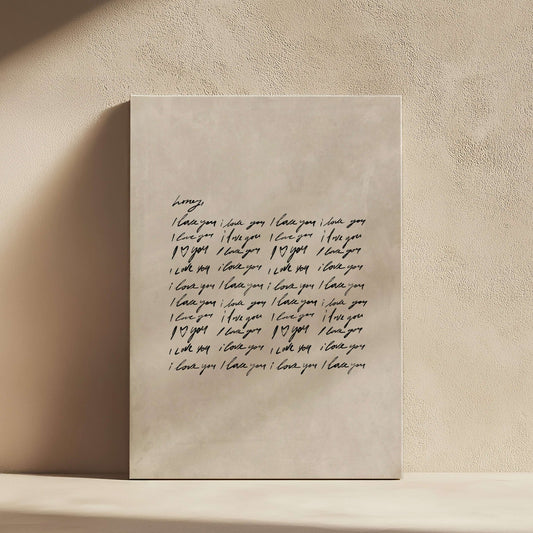 honey,
I love you i love you I love you i love you
I love you i love you I love you i love you
I ♡ you I love you I ♡ you I love you
I LOVE YOU i love you I LOVE YOU i love you
i love you I love you i love you I love you
I love you i love you I love you i love you
I love you i love you I love you i love you
I ♡ you I love you I ♡ you I love you
I LOVE YOU i love you I LOVE YOU i love you
i love you I love you i love you I love you